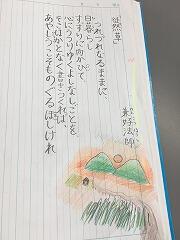 徒然草
兼好法師
つれづれなるままに、
日暮らし
すずりに向かひて
心にうつりゆくよしなしごとを
そこはかとなく書きつくれば、
あやしうこそものぐるほしけれ